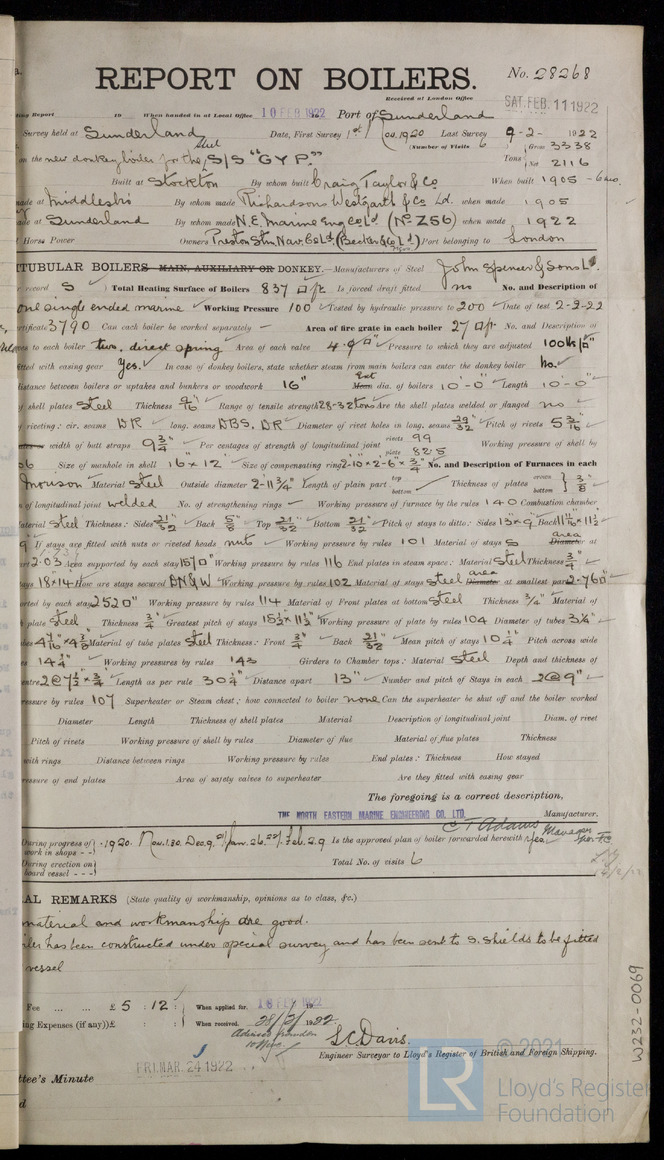 REPORT ON BOILERS.
No. 28268
Received at London Office
SAT. FEB. 11 1922
ing Report 19 When handed in at Local Office 10 FEB 1922 Port of Sunderland
Survey held at Sunderland Date, First Survey 1st 1920 Last Survey 9-2-1922
(Number of Visits 6
on the new steel donkey boiler for the S/S "GYP." Tons Gross 3338 Net 2116
Built at Stockton By whom built Craig Taylor & Co When built 1905 - 6mo.
made at Middlesbro By whom made Richardsons Westgarth & Co Ld. when made 1905
ade at Sunderland By whom made N.E. Marine Eng Co Ld (No 256) when made 1922
l Horse Power Owners Preston Stm. Nav. Co Ld (Becker & Co Ld) Port belonging to London
ITUBULAR BOILERS MAIN, AUXILIARY OR DONKEY.—Manufacturers of Steel John Spencer & Sons Ld.
record S Total Heating Surface of Boilers 837 □ft. Is forced draft fitted no No. and Description of
One single ended marine Working Pressure 100 Tested by hydraulic pressure to 200 Date of test 2-2-22
rtificate 3790 Can each boiler be worked separately — Area of fire grate in each boiler 27 □ft. No. and Description of
ves to each boiler two, direct spring Area of each valve 4.9 □" Pressure to which they are adjusted 100 lbs/□"
itted with easing gear yes. In case of donkey boilers, state whether steam from main boilers can enter the donkey boiler no.
istance between boilers or uptakes and bunkers or woodwork 16" Ext Mean dia. of boilers 10-0" Length 10-0"
f shell plates Steel Thickness 9/16" Range of tensile strength 28-32 tons Are the shell plates welded or flanged no
f riveting: cir. seams DR long. seams DBS, DR Diameter of rivet holes in long. seams 29/32" Pitch of rivets 5 3/16"
width of butt straps 9 3/4" Per centages of strength of longitudinal joint rivets 99 plate 82.5 Working pressure of shell by
Size of manhole in shell 16" x 12" Size of compensating ring 2'-10" x 2'-6" x 3/4" No. and Description of Furnaces in each
Morison Material Steel Outside diameter 2-11 3/4" Length of plain part top bottom Thickness of plates crown bottom } 3/8"
n of longitudinal joint welded No. of strengthening rings — Working pressure of furnace by the rules 140 Combustion chamber
aterial Steel Thickness: Sides 21/32" Back 5/8" Top 21/32" Bottom 21/32" Pitch of stays to ditto: Sides 13" x 9" Back 11 11/16" x 11 1/2"
If stays are fitted with nuts or riveted heads nuts Working pressure by rules 101 Material of stays S area Diameter at
rt 2.03 Area supported by each stay 157 □" Working pressure by rules 116 End plates in steam space: Material Steel Thickness 3/4"
ays 18 x 14 How are stays secured DN&W Working pressure by rules 102 Material of stays Steel area Diameter at smallest part 2.76 □"
rted by each stay 252 □" Working pressure by rules 114 Material of Front plates at bottom Steel Thickness 3/4" Material of
k plate Steel Thickness 3/4" Greatest pitch of stays 15 1/2" x 11 1/2" Working pressure of plate by rules 104 Diameter of tubes 3 1/4"
bes 4 7/16" x 4 3/8" Material of tube plates Steel Thickness: Front 3/4" Back 21/32" Mean pitch of stays 10 1/4" Pitch across wide
14 1/4" Working pressures by rules 143 Girders to Chamber tops: Material Steel Depth and thickness of
entre 2@7 1/2" x 3/4" Length as per rule 30 1/4" Distance apart 13" Number and pitch of Stays in each 2@9"
ressure by rules 107 Superheater or Steam chest; how connected to boiler none Can the superheater be shut off and the boiler worked
Diameter Length Thickness of shell plates Material Description of longitudinal joint Diam. of rivet
Pitch of rivets Working pressure of shell by rules Diameter of flue Material of flue plates Thickness
with rings Distance between rings Working pressure by rules End plates: Thickness How stayed
ressure of end plates Area of safety valves to superheater Are they fitted with easing gear
The foregoing is a correct description,
THE NORTH EASTERN MARINE ENGINEERING CO. LTD. Manufacturer.
C T Adams Manager
During progress of work in shops - - 1920. Nov. 1. 30. Dec. 9. 21/ Jan. 26. 22/ Feb. 2. 9 Is the approved plan of boiler forwarded herewith yes
During erection on board vessel - - - Total No. of visits 6
AL REMARKS (State quality of workmanship, opinions as to class, &c.)
material and workmanship are good.
iler has been constructed under special survey and has been sent to S. Shields to be fitted
vessel
Fee ... ... £ 5 : 12 : When applied for. 18 FEB 1922 19
ing Expenses (if any) £ : : When received. 28/2/1922
S C Davis.
Engineer Surveyor to Lloyd's Register of British and Foreign Shipping.
FRI. MAR. 24 1922
ttee's Minute
d
W232-0069
© 2021
LR
Lloyd's Register
Foundation